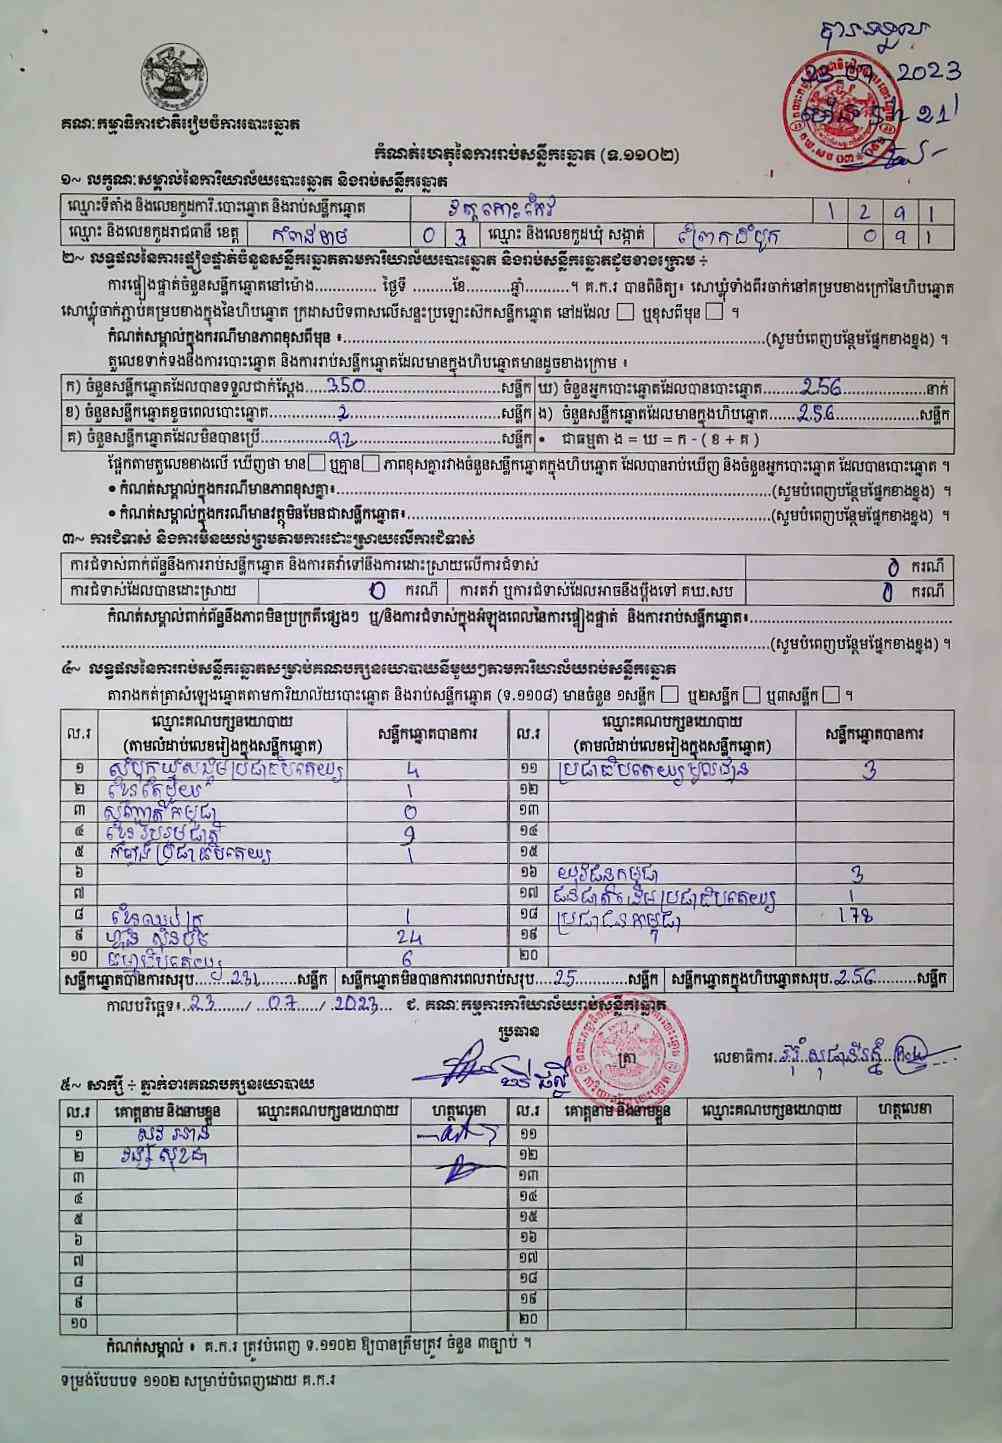 បានទទួល
23-07 2023
ម៉ោង 21
គណៈកម្មាធិការជាតិរៀបចំការបោះឆ្នោត
កំណត់ហេតុនៃការរាប់សន្លឹកឆ្នោត (ទ.១១០២)
១~ លក្ខណៈសម្គាល់នៃការិយាល័យបោះឆ្នោត និងរាប់សន្លឹកឆ្នោត
ឈ្មោះទីតាំង និងលេខកូដការិ.បោះឆ្នោត និងរាប់សន្លឹកឆ្នោត វត្តកោះកែវ 1 2 9 1
ឈ្មោះ និងលេខកូដរាជធានី ខេត្ត កំពង់ចាម 0 3 ឈ្មោះ និងលេខកូដឃុំ សង្កាត់ ព្រែកដំបូក 0 9 1
២~ លទ្ធផលនៃការផ្ទៀងផ្ទាត់ចំនួនសន្លឹកឆ្នោតតាមការិយាល័យបោះឆ្នោត និងរាប់សន្លឹកឆ្នោតដូចខាងក្រោម ÷
ការផ្ទៀងផ្ទាត់ចំនួនសន្លឹកឆ្នោតនៅម៉ោង.............. ថ្ងៃទី .........ខែ..........ឆ្នាំ..........។ គ.ក.រ បានពិនិត្យ៖ សោឃ្លុំទាំងពីរចាក់នៅគម្របខាងក្រៅនៃហិបឆ្នោត
សោឃ្លុំចាក់ភ្ជាប់គម្របខាងក្នុងនៃហិបឆ្នោត ក្រដាសបិទពាសលើសន្ទះប្រឡោះស៊កសន្លឹកឆ្នោត នៅដដែល ☐ ឬខុសពីមុន ☐ ។
កំណត់សម្គាល់ក្នុងករណីមានភាពខុសពីមុន ៖..........(សូមបំពេញបន្ថែមផ្នែកខាងខ្នង) ។
តួលេខទាក់ទងនឹងការបោះឆ្នោត និងការរាប់សន្លឹកឆ្នោតដែលមានក្នុងហិបឆ្នោតមានដូចខាងក្រោម ៖
ក) ចំនួនសន្លឹកឆ្នោតដែលបានទទួលជាក់ស្តែង....350..........សន្លឹក ឃ) ចំនួនអ្នកបោះឆ្នោតដែលបានបោះឆ្នោត........256..........នាក់
ខ) ចំនួនសន្លឹកឆ្នោតខូចពេលបោះឆ្នោត..........2..........សន្លឹក ង) ចំនួនសន្លឹកឆ្នោតដែលមានក្នុងហិបឆ្នោត......256..........សន្លឹក
គ) ចំនួនសន្លឹកឆ្នោតដែលមិនបានប្រើ..........92..........សន្លឹក • ជាធម្មតា ង = ឃ = ក - ( ខ + គ )
ផ្អែកតាមតួលេខខាងលើ ឃើញថា មាន ☐ ឬគ្មាន ☐ ភាពខុសគ្នារវាងចំនួនសន្លឹកឆ្នោតក្នុងហិបឆ្នោត ដែលបានរាប់ឃើញ និងចំនួនអ្នកបោះឆ្នោត ដែលបានបោះឆ្នោត ។
• កំណត់សម្គាល់ក្នុងករណីមានភាពខុសគ្នា៖..........(សូមបំពេញបន្ថែមផ្នែកខាងខ្នង) ។
• កំណត់សម្គាល់ក្នុងករណីមានវត្ថុមិនមែនជាសន្លឹកឆ្នោត៖..........(សូមបំពេញបន្ថែមផ្នែកខាងខ្នង) ។
៣~ ការជំទាស់ និងការមិនយល់ព្រមតាមការដោះស្រាយលើការជំទាស់
ការជំទាស់ពាក់ព័ន្ធនឹងការរាប់សន្លឹកឆ្នោត និងការតវ៉ាទៅនឹងការដោះស្រាយលើការជំទាស់ 0 ករណី
ការជំទាស់ដែលបានដោះស្រាយ 0 ករណី ការតវ៉ា ឬការជំទាស់ដែលអាចនឹងប្តឹងទៅ គឃ.សប 0 ករណី
កំណត់សម្គាល់ពាក់ព័ន្ធនឹងភាពមិនប្រក្រតីផ្សេងៗ ឬ/និងការជំទាស់ក្នុងអំឡុងពេលនៃការផ្ទៀងផ្ទាត់ និងការរាប់សន្លឹកឆ្នោត៖..........
..........(សូមបំពេញបន្ថែមផ្នែកខាងខ្នង) ។
៤~ លទ្ធផលនៃការរាប់សន្លឹកឆ្នោតសម្រាប់គណបក្សនយោបាយនីមួយៗតាមការិយាល័យរាប់សន្លឹកឆ្នោត
តារាងកត់ត្រាសំឡេងឆ្នោតតាមការិយាល័យបោះឆ្នោត និងរាប់សន្លឹកឆ្នោត (ទ.១១០៨) មានចំនួន ១សន្លឹក ☐ ឬ២សន្លឹក ☐ ឬ៣សន្លឹក ☐ ។
ល.រ ឈ្មោះគណបក្សនយោបាយ (តាមលំដាប់លេខរៀងក្នុងសន្លឹកឆ្នោត) សន្លឹកឆ្នោតបានការ ល.រ ឈ្មោះគណបក្សនយោបាយ (តាមលំដាប់លេខរៀងក្នុងសន្លឹកឆ្នោត) សន្លឹកឆ្នោតបានការ
១ សំបុកឃ្មុំសង្គមប្រជាធិបតេយ្យ 4 ១១ ប្រជាធិបតេយ្យមូលដ្ឋាន 3
២ ខ្មែរតែមួយ 1 ១២
៣ សញ្ជាតិកម្ពុជា 0 ១៣
៤ ខ្មែររួបរួមជាតិ 9 ១៤
៥ កម្លាំងប្រជាធិបតេយ្យ 1 ១៥
៦ ១៦ យុវជនកម្ពុជា 3
៧ ១៧ ជនជាតិដើមប្រជាធិបតេយ្យ 1
៨ ខ្មែរឈប់ក្រ 1 ១៨ ប្រជាជនកម្ពុជា 178
៩ ហ្វ៊ុនស៊ិនប៉ិច 24 ១៩
១០ ធម្មាធិបតេយ្យ 6 ២០
សន្លឹកឆ្នោតបានការសរុប.......231.........សន្លឹក សន្លឹកឆ្នោតមិនបានការពេលរាប់សរុប....25..........សន្លឹក សន្លឹកឆ្នោតក្នុងហិបឆ្នោតសរុប.256..........សន្លឹក
កាលបរិច្ឆេទ៖..23......./..07....../.2023.... ជ. គណៈកម្មការការិយាល័យរាប់សន្លឹកឆ្នោត
ប្រធាន
ត្រា
លេខាធិការ
៥~ សាក្សី ÷ ភ្នាក់ងារគណបក្សនយោបាយ
ល.រ គោត្តនាម និងនាមខ្លួន ឈ្មោះគណបក្សនយោបាយ ហត្ថលេខា ល.រ គោត្តនាម និងនាមខ្លួន ឈ្មោះគណបក្សនយោបាយ ហត្ថលេខា
១ ១១
២ ១២
៣ ១៣
៤ ១៤
៥ ១៥
៦ ១៦
៧ ១៧
៨ ១៨
៩ ១៩
១០ ២០
កំណត់សម្គាល់ ៖ គ.ក.រ ត្រូវបំពេញ ទ.១១០២ ឱ្យបានត្រឹមត្រូវ ចំនួន ៣ច្បាប់ ។
ទម្រង់បែបបទ ១១០២ សម្រាប់បំពេញដោយ គ.ក.រ